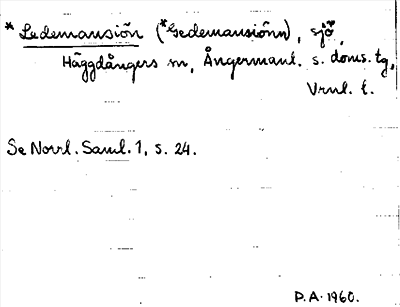 * Ledemansiön (*Gedemansiönn), sjö,
Häggdångers sn, Ångermanl. s. doms. tg,
Vrnl. l.
Se Norrl. Saml. 1, s. 24.
P.A. 1960.